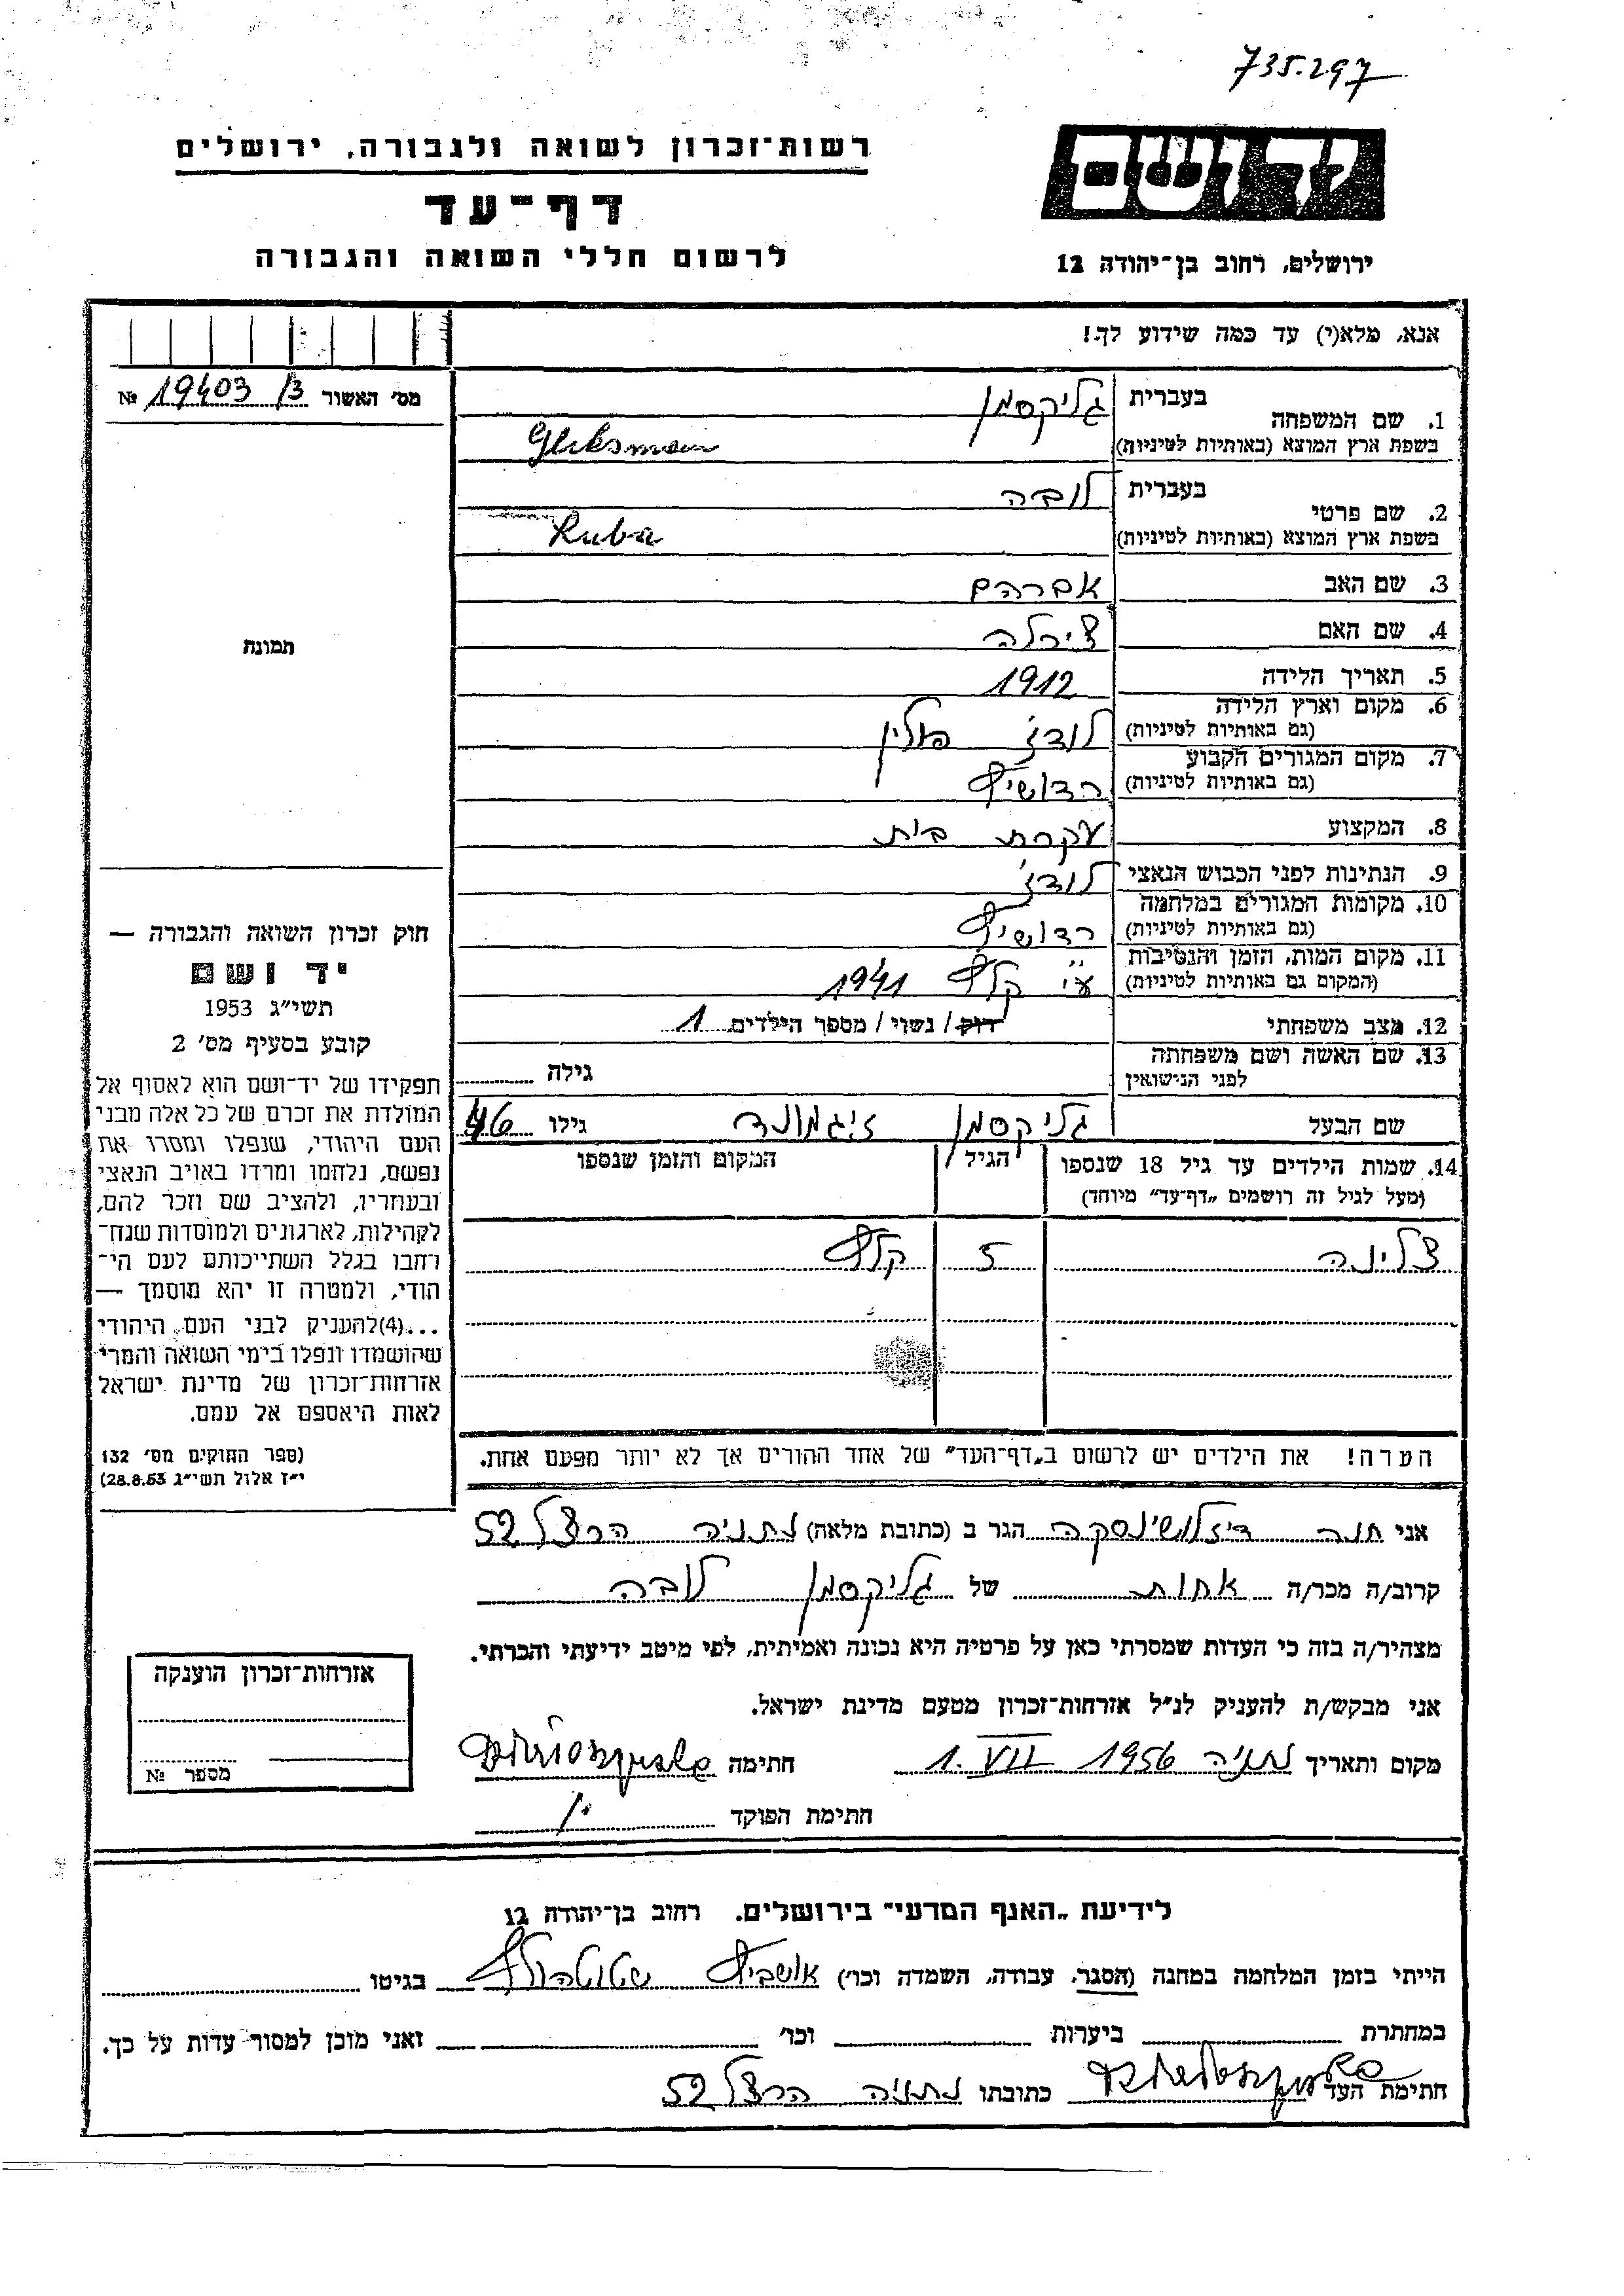 735.297
רשות־זכרון לשואה ולגבורה, ירושלים
יד ושם
דף־עד
לרשום חללי השואה והגבורה
ירושלים, רחוב בן־יהודה 12
אנא, מלא(י) עד כמה שידוע לך!
מס' האשור 19403/3 №
1. שם המשפחה בעברית גליקסמן
בשפת ארץ המוצא (באותיות לטיניות) Gliksman
2. שם פרטי בעברית לובה
בשפת ארץ המוצא (באותיות לטיניות) Luba
3. שם האב אברהם
4. שם האם צירלה
5. תאריך הלידה 1912
6. מקום וארץ הלידה לודז' פולין
(גם באותיות לטיניות)
7. מקום המגורים הקבוע
(גם באותיות לטיניות)
8. המקצוע עקרת בית
9. הנתינות לפני הכבוש הנאצי לודז'
10. מקומות המגורים במלחמה
(גם באותיות לטיניות)
11. מקום המות, הזמן והנסיבות 1941
(המקום גם באותיות לטיניות)
12. מצב משפחתי רוק / נשוי / מספר הילדים 1
13. שם האשה ושם משפחתה
לפני הנישואין
גילה
שם הבעל גליקסמן זיגמונד גילו 46
14. שמות הילדים עד גיל 18 שנספו
(מעל לגיל זה רושמים „דף־עד" מיוחד)
הגיל
המקום והזמן שנספו
צלינה 5
הערה! את הילדים יש לרשום ב„דף־העד" של אחד ההורים אך לא יותר מפעם אחת.
תמונה
חוק זכרון השואה והגבורה —
יד ושם
תשי"ג 1953
קובע בסעיף מס' 2
תפקידו של יד־ושם הוא לאסוף אל
המולדת את זכרם של כל אלה מבני
העם היהודי, שנפלו ומסרו את
נפשם, נלחמו ומרדו באויב הנאצי
ובעוזריו, ולהציב שם וזכר להם,
לקהילות, לארגונים ולמוסדות שנח־
רחבו בגלל השתייכותם לעם הי־
הודי, ולמטרה זו יהא מוסמך —
...(4)להעניק לבני העם היהודי
שהושמדו ונפלו בימי השואה והמרי
אזרחות־זכרון של מדינת ישראל
לאות היאספם אל עמם.
(ספר החוקים מס' 132
י"ז אלול תשי"ג 28.8.53)
אני חנה הגר ב (כתובת מלאה) נתניה הרצל 52
קרוב/ה מכר/ה אחות של גליקסמן לובה
מצהיר/ה בזה כי העדות שמסרתי כאן על פרטיה היא נכונה ואמיתית, לפי מיטב ידיעתי והכרתי.
אני מבקש/ת להעניק לנ"ל אזרחות־זכרון מטעם מדינת ישראל.
מקום ותאריך נתניה 1. VII 1956 חתימה
חתימת הפוקד
אזרחות־זכרון הוענקה
מספר №
לידיעת „האגף המדעי" בירושלים. רחוב בן־יהודה 12
הייתי בזמן המלחמה במחנה (הסגר, עבודה, השמדה וכו') אושביץ שטוטהוף בגיטו
במחתרת ביערות וכו' ואני מוכן למסור עדות על כך.
חתימת העד כתובתו נתניה הרצל 52